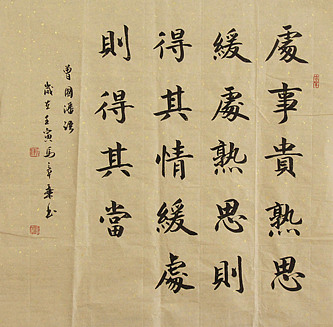 處事貴熟思
緩處熟思則
得其情緩處
則得其當
曾國藩語
歲在壬寅馬年春書